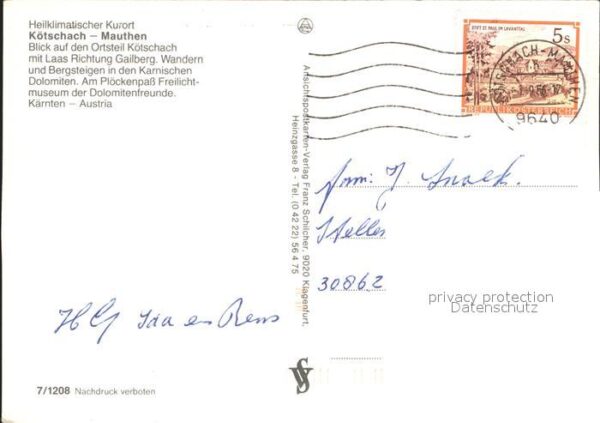 Heilklimatischer Kurort
Kötschach – Mauthen
Blick auf den Ortsteil Kötschach
mit Laas Richtung Gailberg. Wandern
und Bergsteigen in den Karnischen
Dolomiten. Am Plöckenpaß Freilicht-
museum der Dolomitenfreunde.
Kärnten – Austria
STIFT ST. PAUL IM LAVANTTAL
5s
REPUBLIK ÖSTERREICH
KÖTSCHACH-MAUTHEN
9640
Ansichtspostkarten-Verlag Franz Schilcher, 9020 Klagenfurt,
Heinzgasse 8 - Tel. (0 42 22) 56 4 75
Fam: J. Snoek.
30862
privacy protection
Datenschutz
en Rens
7/1208 Nachdruck verboten